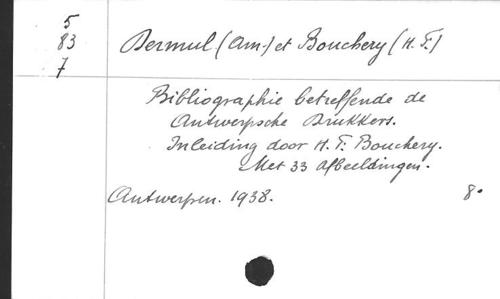 5
83
7
Dermul (Am.) et Bouchery (H. F.)
Bibliographie betreffende de
Antwerpsche Drukkers.
Inleiding door H. F. Bouchery.
Met 33 afbeeldingen.
Antwerpen. 1938. 8°